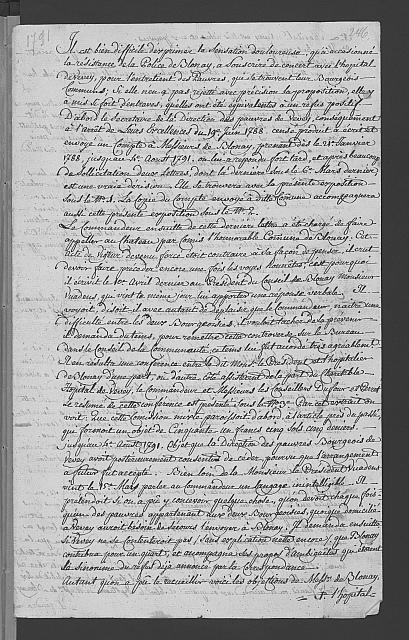 246
1791
Il est bien difficile d'exprimer la Sensation douloureuse, qu'a occasionné
la résistance de la Police de Blonay, a souscrire de concert avec l'hopital
de Vevey, pour l'entretient des Pauvres, qui se trouvent leur Bourgeois
Communs; Si elle n'en a pas rejetté avec précision la proposition, elle y
a mis si fort d'entraves, qu'elles ont été équivalentes a un refus positif
D'abord le Secretaire de la Direction des pauvres de Vevey, conséquemment
à l'arrêt de Leurs Excellences du 19e Juin 1788. censé produit a écrit et
envoyé un Compte à Messieurs de Blonay, prenant dès le 24e Janvier
1788, jusqu'au 4e Aoust 1791. on lui a repondu fort tard, et après beaucoup
de Sollicitation deux Lettres, dont la derniere sous le 6e Mars dernier
est une vraie dérision. Elle se trouvera avec la présente exposition
sous le No. 1. La Copie du Compte envoyé à dite Commune accompagnera
aussi cette présente exposition sous le No. 2.
Le Commandeur ensuite de cette derniere lettre a été chargé de faire
appeller au Chateau par Comis l'honorable Commune de Blonay. Cet
acte de rigueur devenu forcé étoit contraire à sa façon de penser, il crut
devoir faire précéder encore une fois les voyes honnêtes, c'est pourquoi
il écrivit le 10e Avril dernier au Président du Conseil de Blonay Monsieur
Vuadens, qui vint le même jour lui apporter une réponse verbale. Il
voyoit, disoit-il avec autant de déplaisir que le Commandeur, naître une
difficulté entre les deux Bourgeoisies. Et voulant tacher de la prévenir
demanda du tems, pour remettre cette controverse sur le Bureau
dans le Conseil de la Communauté, ce tems lui fut accordé très agréablement
Il en resulta une conférence entre le dit Monsr. le Président et l'hopitalier
de Blonay d'une part, ni d'autre côté assisterent de la part du Charitable
Hôpital de Vevey, le Commandeur et Messieurs les Conseillers Dufour et Perret
Le résumé de cette conférence est présenté sous le No. 3. Par cet extrait on
voit. Que cette soumission ne leur paroissoit d'abord à l'article prés du passé,
qui formoit un objet de Cinquante un francs cinq sols cinq deniers
jusqu'au 4e Aoust 1791. Objet que la Direction des pauvres Bourgeois de
Vevey auroit postérieurement consentir de céder, pourvu que l'arrangement
à futur fut accepté. Bien loin de là Monsieur le Président Vuadens
vint le 15e Mars parler au Commandeur un langage inintelligible. Il
prétendoit si on a pu y concevoir quelque chose, qu'on devoit chaque fois
qu'un des pauvres appartenant aux deux Bourgeoisies, quoique domicilié
à Vevey auroit besoin de secours l'envoyer à Blonay. Il demanda ensuite
si Vevey ne se contenteroit pas (sans explication nette encore) que Blonay
contribua pour un quart, et accompagna ses propos d'ambiguités qui étoient
la sinonime du refus déjà annoncé par la Correspondance.
Autant qu'on a pu le recueillir voici les objections de Messrs. de Blonay,
L'hopital